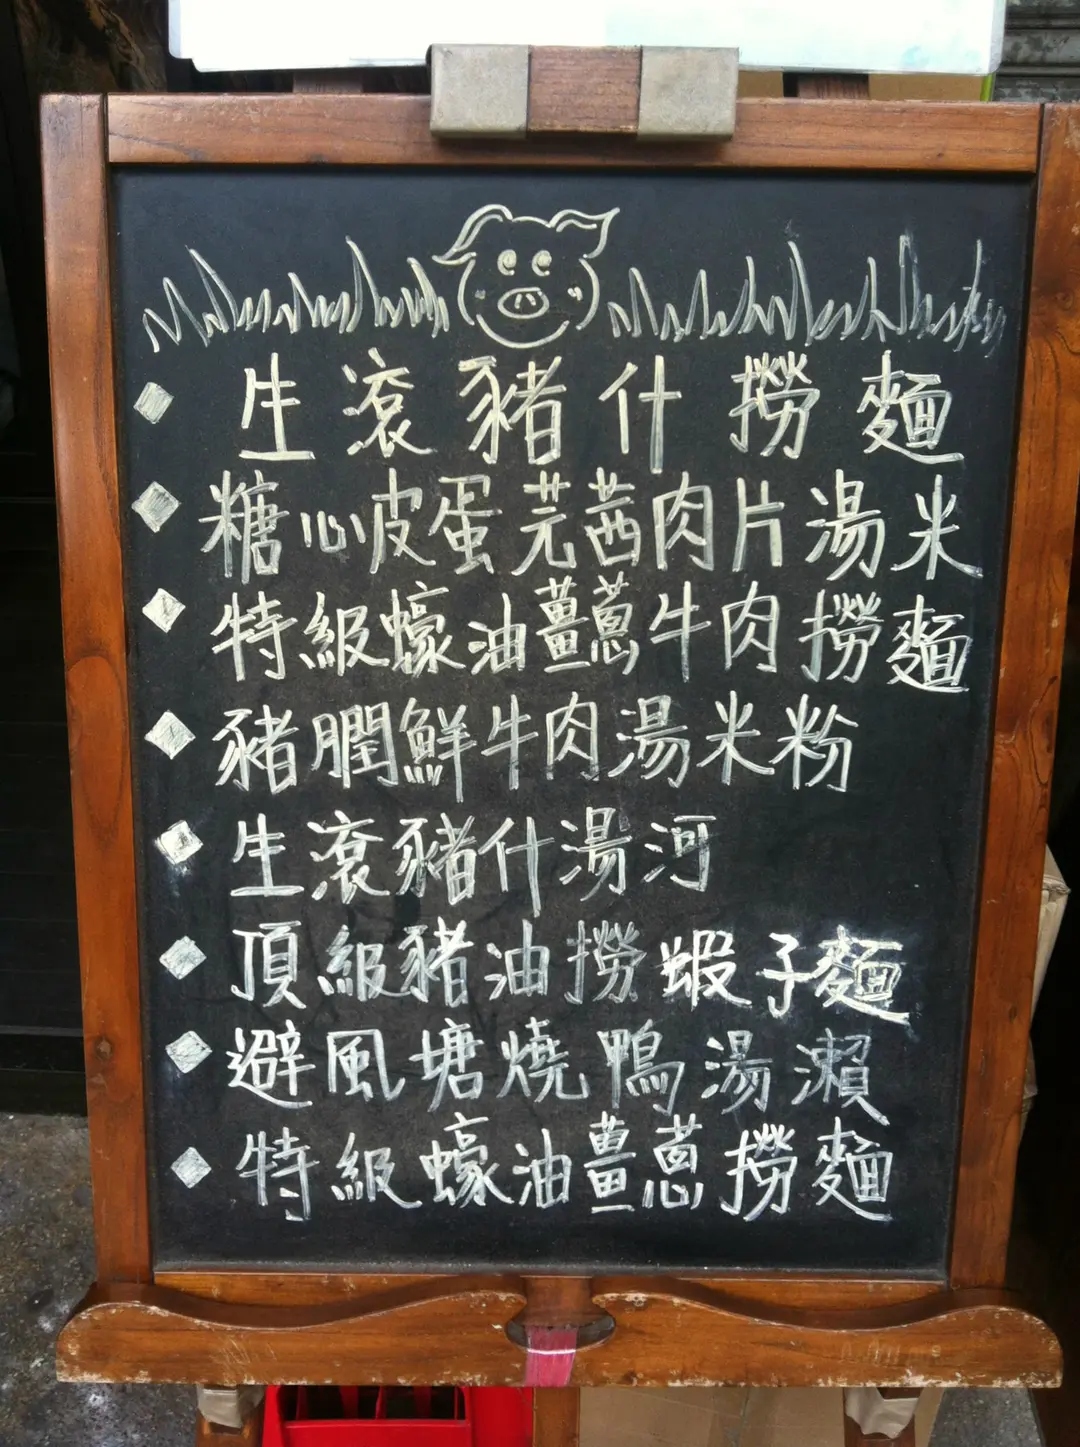 生滾豬什撈麵
糖心皮蛋芫茜肉片湯米
特級蠔油薑蔥牛肉撈麵
豬膶鮮牛肉湯米粉
生滾豬什湯河
頂級豬油撈蝦子麵
避風塘燒鴨湯瀨
特級蠔油薑蔥撈麵